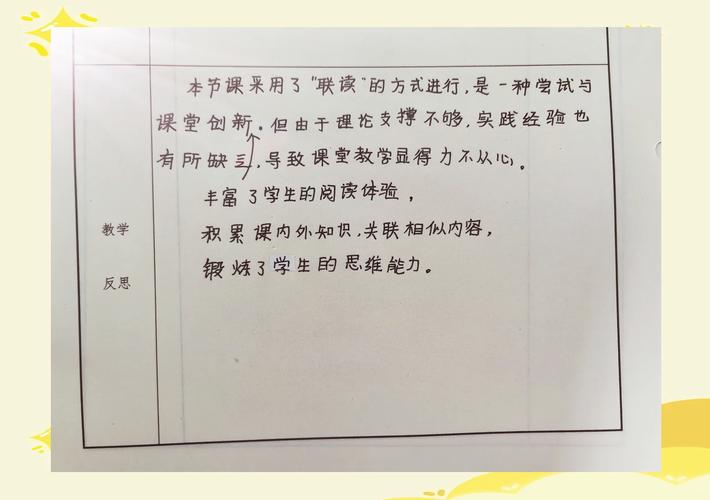 本节课采用了“联读”的方式进行，是一种尝试与
课堂创新。但由于理论支撑不够，实践经验也
有所缺乏，导致课堂教学显得力不从心。
丰富了学生的阅读体验，
教学
积累课内外知识，关联相似内容，
锻炼了学生的思维能力。
反思